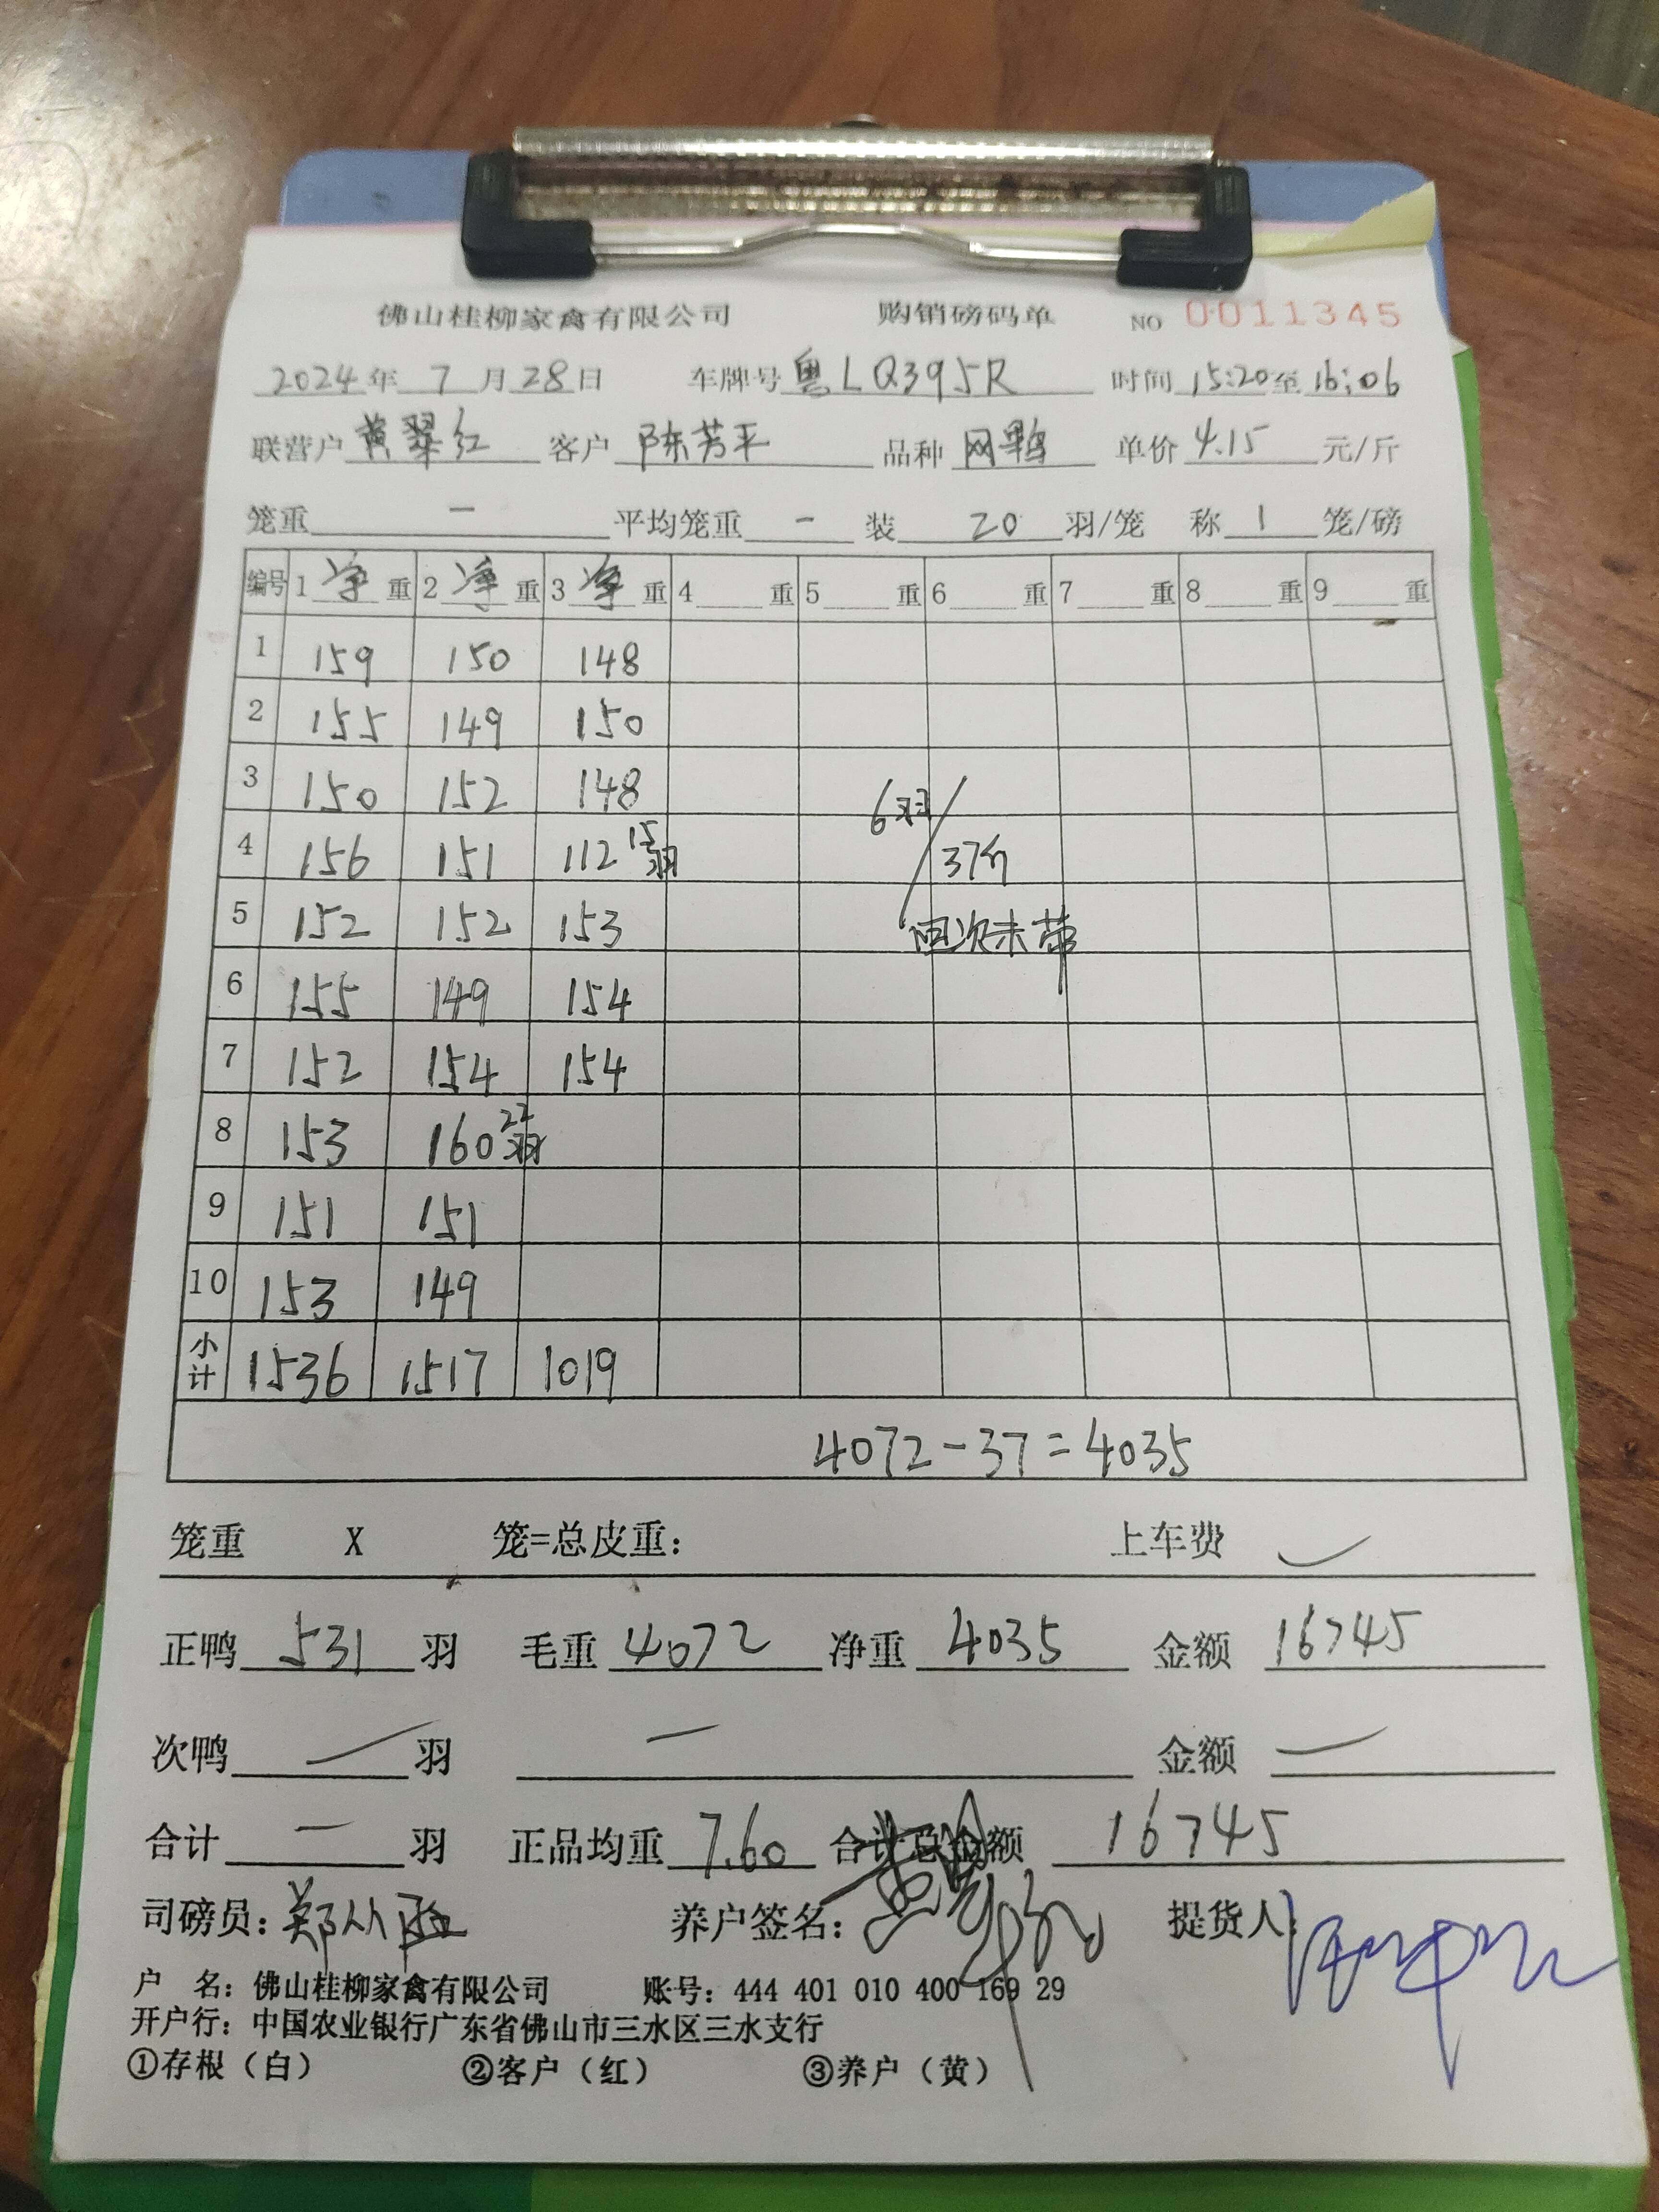 佛山桂柳家禽有限公司 购销磅码单 NO 0011345
2024年 7 月 28 日 车牌号 粤LQ395R 时间 15:20 至 16:06
联营户 黄翠红 客户 陈芳平 品种 网鸭 单价 4.15 元/斤
笼重 — 平均笼重 — 装 20 羽/笼 称 1 笼/磅
编号 1 净 重 2 净 重 3 净 重 4 重 5 重 6 重 7 重 8 重 9 重
1 159 150 148
2 155 149 150
3 150 152 148
6羽/
4 156 151 112 15羽 37斤
5 152 152 153 次未带
6 155 149 154
7 152 154 154
8 153 160 22羽
9 151 151
10 153 149
小计 1536 1517 1019
4072-37=4035
笼重 X 笼=总皮重: 上车费
正鸭 531 羽 毛重 4072 净重 4035 金额 16745
次鸭 羽 — 金额 —
合计 — 羽 正品均重 7.60 合计总金额 16745
司磅员: 郑 养户签名: 提货人:
户 名: 佛山桂柳家禽有限公司 账号: 444 401 010 400 169 29
开户行: 中国农业银行广东省佛山市三水区三水支行
①存根（白） ②客户（红） ③养户（黄）